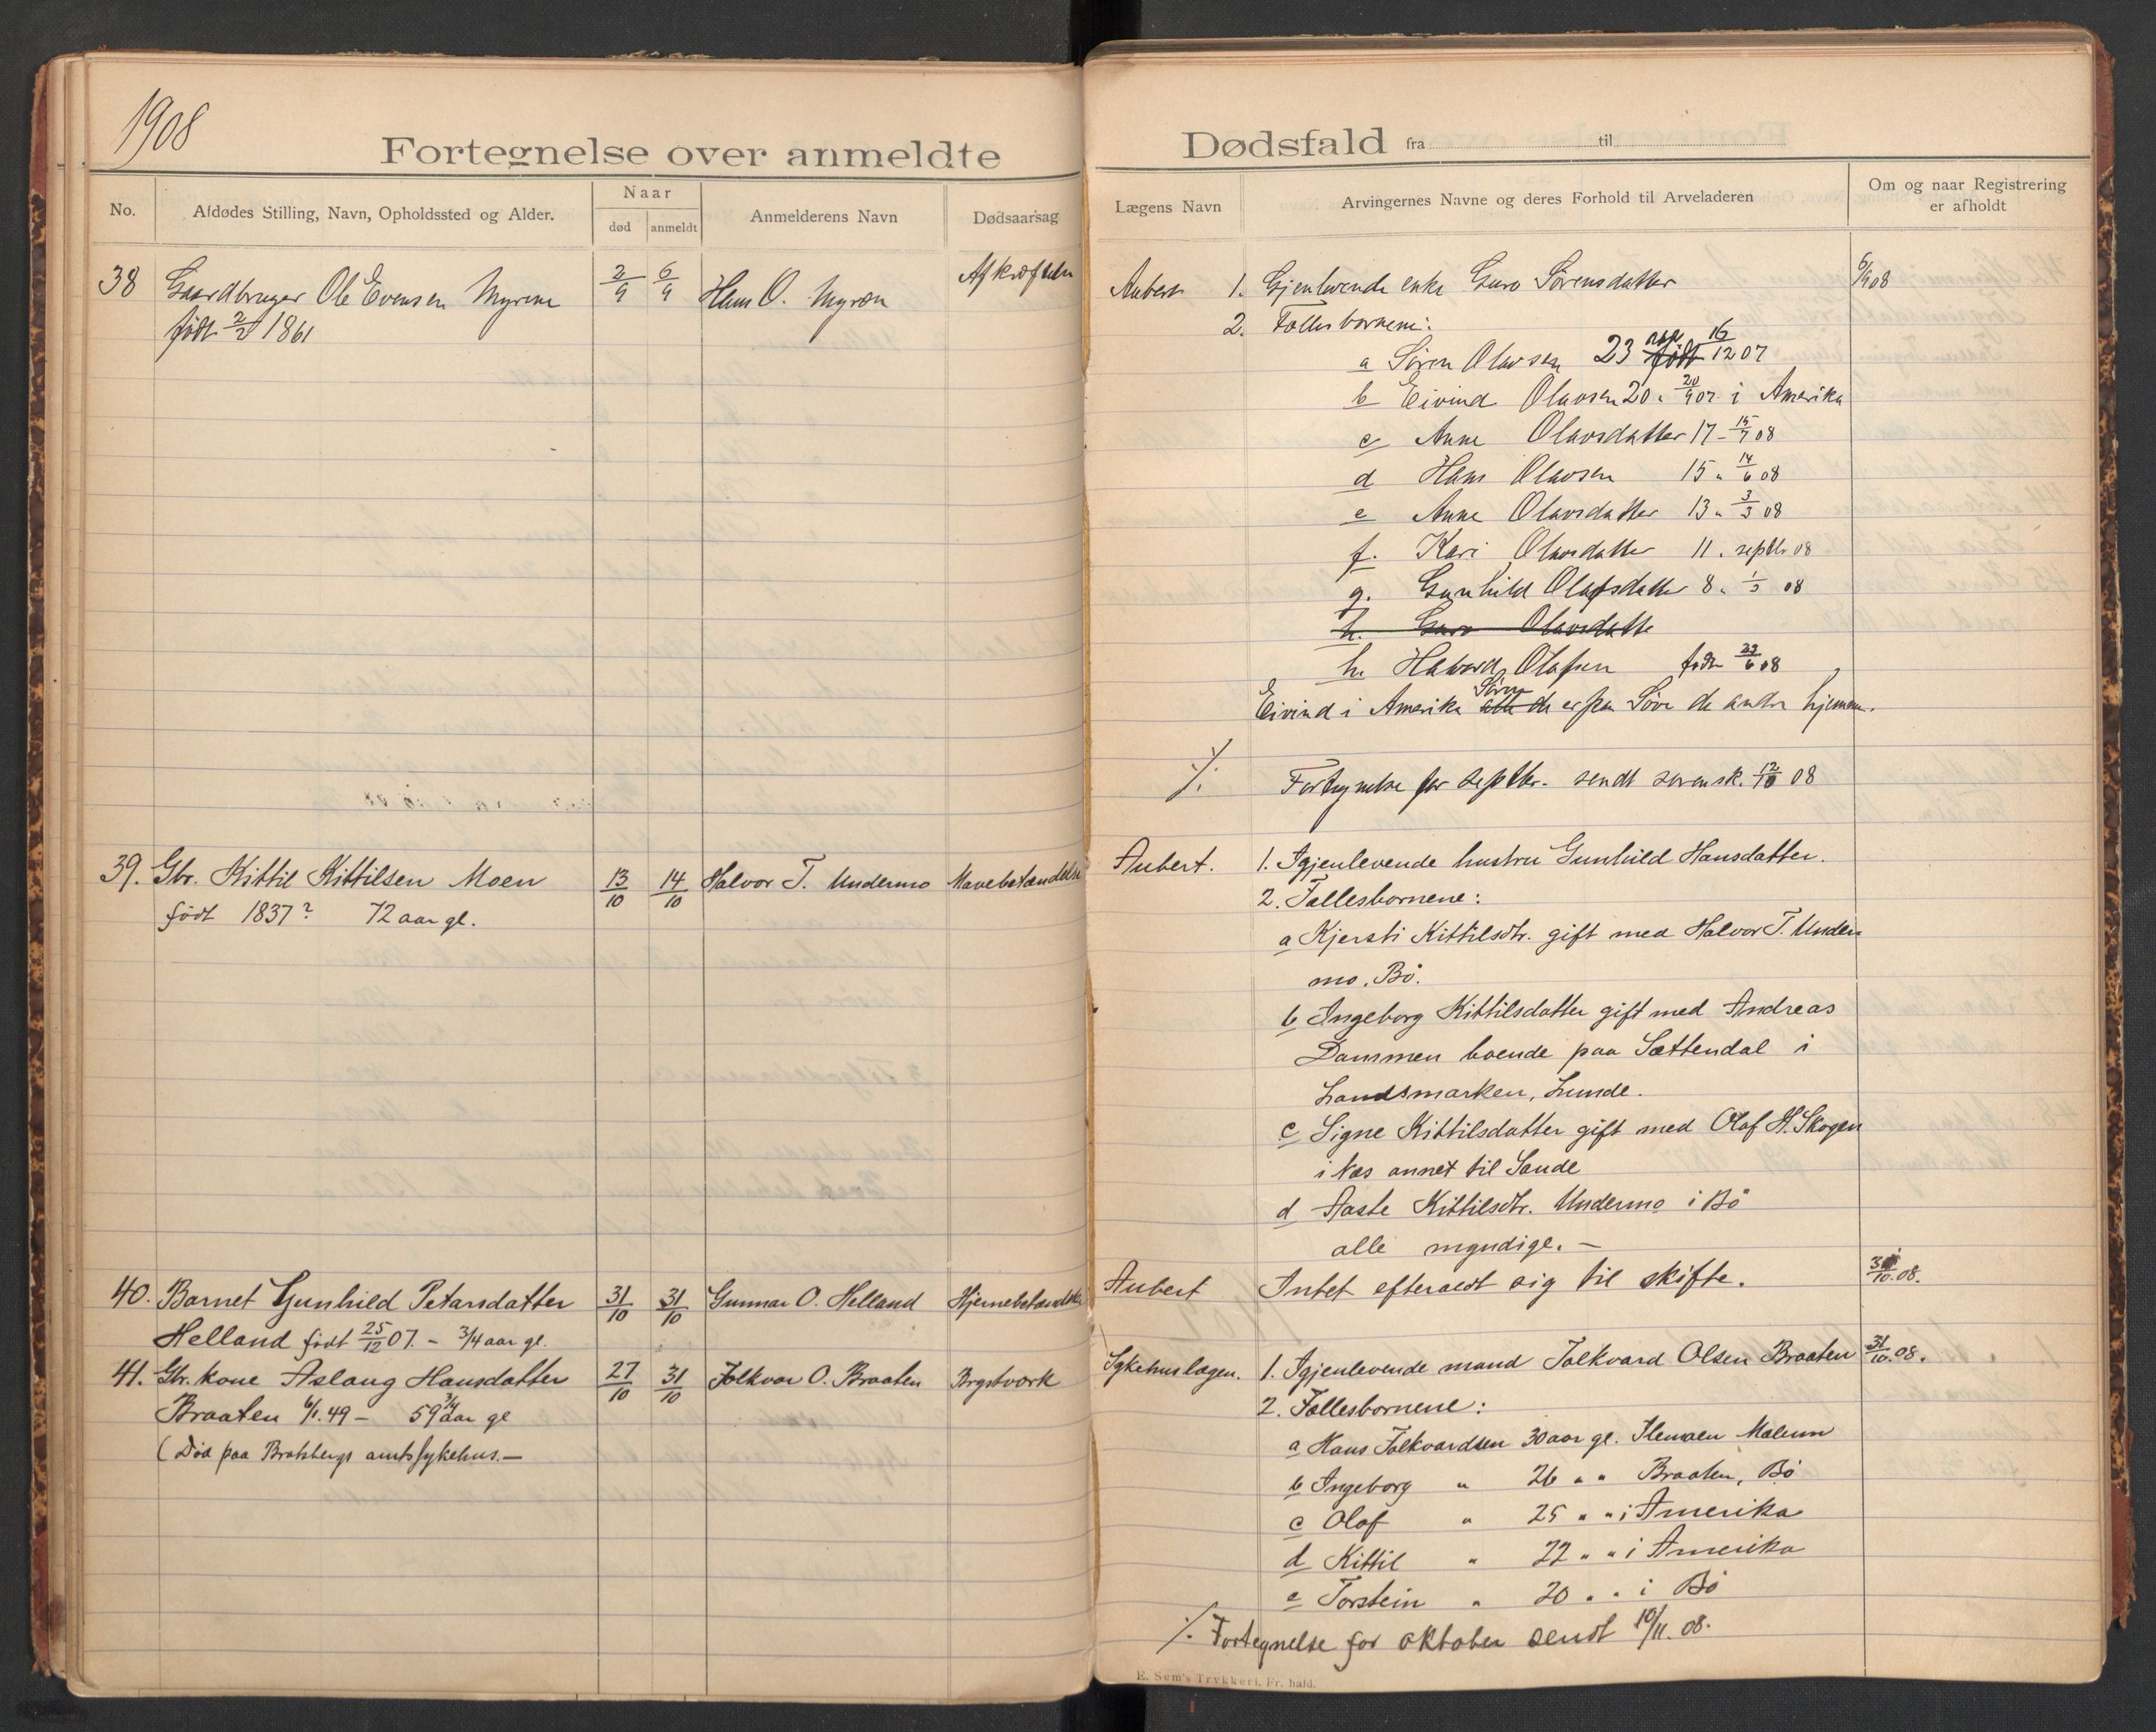 1908
Fortegnelse over anmeldte
Dødsfald fra til
No.
Afdødes Stilling, Navn, Opholdssted og Alder.
Naar
død
anmeldt
Anmelderens Navn
Dødsaarsag
Lægens Navn
Arvingernes Navne og deres Forhold til Arveladeren
Om og naar Registrering
er afholdt
38 Gaardbruger Ole Evensen Myrene 2/9 6/9 Hans O. Myren
født 2/2 1861
Aubert 1. Gjenlevende enke Guro Sörensdatter 6/9 08
2. Fællesbørnene:
a Sören Olavsen 23 født 16/12 07
b Eivind Olavsen 20 " 20/9 07. i Amerika
c Anne Olavsdatter 17 - 15/7 08
d Hans Olavsen 15 " 14/6 08
e Anne Olavsdatter 13 " 3/3 08
f. Kari Olavsdatter 11 " septbr 08
g. Gunhild Olafsdatter 8 " 1/3 08
h. Guro Olavsdatte
h. Halvord Olafsen født 22/6 08
Eivind i Amerika Sören er paa Söve de andre hjemme.
./. Fortegnelse for septbr. sendt sorensk. 12/10 08
39. Gbr. Kittil Kittilsen Moen 13/10 14/10 Halvor T. Undermo Mavebetændelse
født 1837? 72 aar gl.
Aubert. 1. Igjenlevende hustru Gunhild Hansdatter.
2. Fællesbørnene:
a Kjersti Kittilsdtr. gift med Halvor T. Under
mo, Bö.
b Ingeborg Kittilsdatter gift med Andreas
Dammen boende paa Sættendal i
Landsmarken, Lunde.
c Signe Kittilsdatter gift med Olaf H. Skogen
i Næs annex til Saude
d Aaste Kittilsdtr. Undermo i Bö
alle myndige. -
40. Barnet Gunhild Petersdatter 31/10 31/10 Gunnar O. Helland Hjernebetændelse
Helland født 25/12 07. - 3/4 aar gl.
Aubert Intet efterladt sig til skifte. 31/10.08.
41. Gbr. kone Aslaug Hansdatter 27/10 31/10 Folkvar O. Braaten Brystværk
Braaten 6/1.49 - 59 3/4 aar gl
(Död paa Bratsbergs amtssykehus. -
Sykehuslægen. 1. Igjenlevende mand Folkvard Olsen Braaten 31/10.08.
2. Fællesbørnene:
a Hans Folkvardsen 30 aar gl. Melum
b Ingeborg " 26 " " Braaten, Bö
c Olaf " 25 " " i Amerika
d Kittil " 22 " " i Amerika
e Torstein " 20 " " i Bö
./. Fortegnelse for oktober sendt 10/11.08.
E. Sem's Trykkeri, Fr. hald.